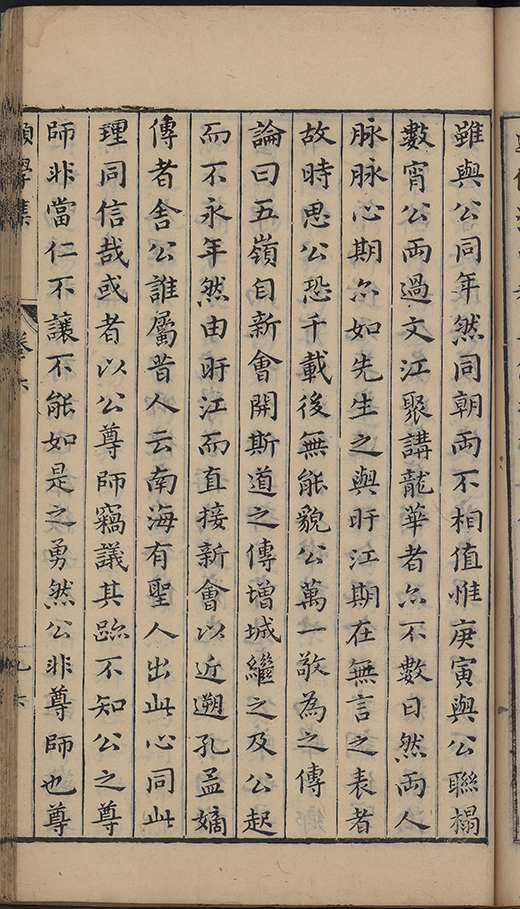 雖與公同年然同朝兩不相值惟庚寅與公聯榻
數宵公兩過文江聚講龍華者尒不數日然兩人
脉脉心期尒如先生之與盱江期在無言之表者
故時思公恐千載後無能貌公萬一敬為之傳
論曰五嶺自新會開斯道之傳增城繼之及公起
而不永年然由盱江而直接新會以近遡孔孟嫡
傳者舍公誰屬昔人云南海有聖人出此心同此
理同信哉或者以公尊師竊議其跡不知公之尊
師非當仁不讓不能如是之勇然公非尊師也尊
願學集
卷六